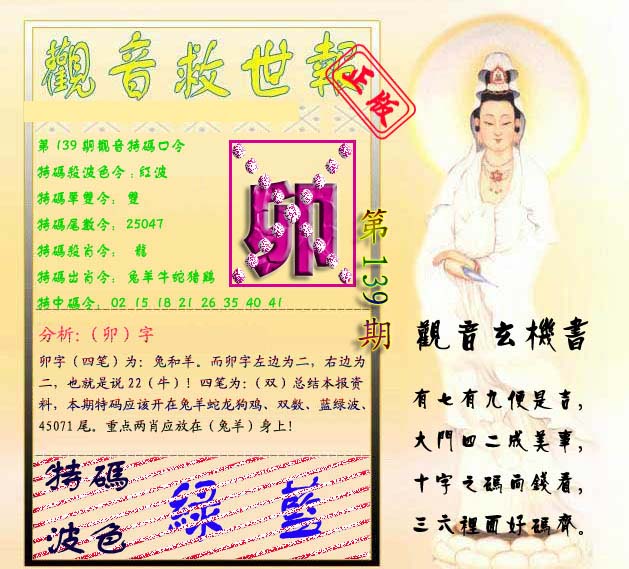 觀音救世報
正版
第139期觀音特碼口令
特碼殺波色令：紅波
特碼單雙令： 雙
特碼尾數令： 25047
特碼殺肖令： 龍
特碼出肖令： 兔羊牛蛇猪鷄
特中碼令： 02 15 18 21 26 35 40 41
卯
第139期
分析:（卯）字
卯字（四笔）为：兔和羊。而卯字左边为二，右边为
二，也就是说22（牛）！四笔为：（双）总结本报资
料，本期特码应该开在兔羊蛇龙狗鸡、双数、蓝绿波、
45071尾。重点两肖应放在（兔羊）身上！
特碼
波色
綠 藍
觀音玄機書
有七有九便是吉，
大門四二成美事，
十字之碼而錢看，
三六裡面好碼齊。